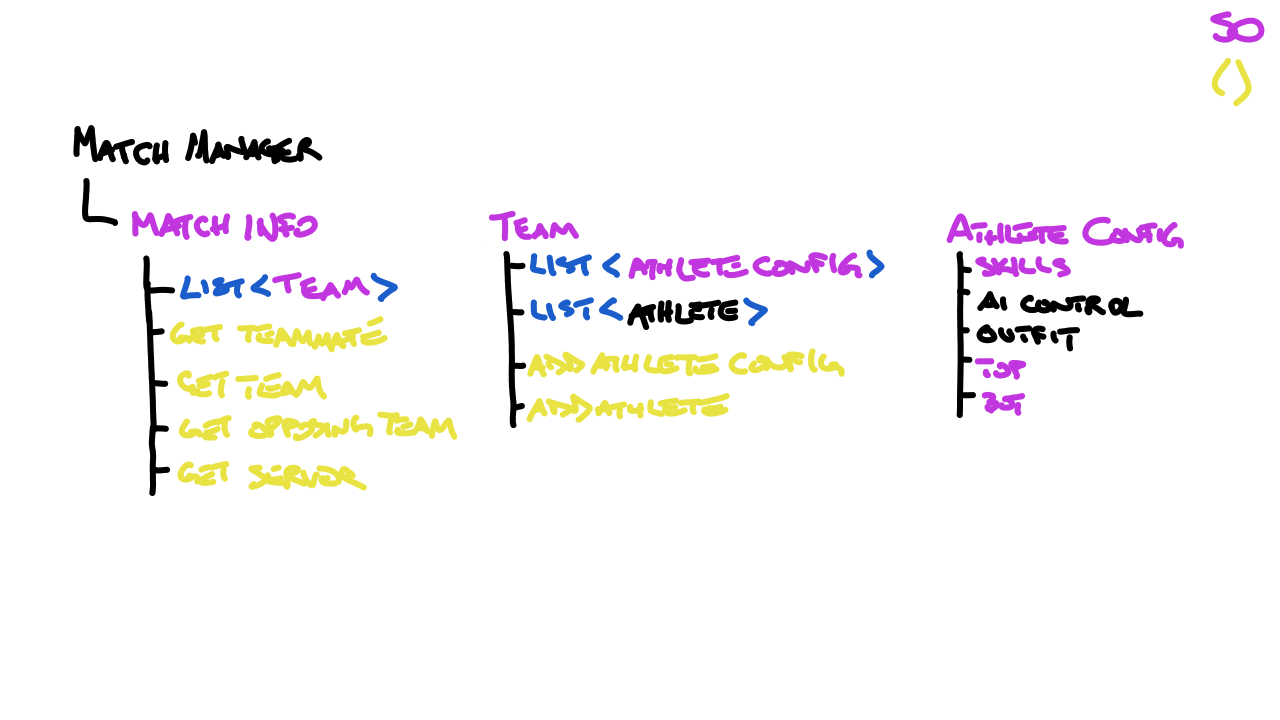 SO
()
MATCH MANAGER
MATCH INFO
LIST<TEAM>
GET TEAMMATE
GET TEAM
GET OPPOSING TEAM
GET SERVER
TEAM
LIST<ATHLETE CONFIG>
LIST<ATHLETE>
ADD ATHLETE CONFIG
ADD ATHLETE
ATHLETE CONFIG
SKILLS
AI CONTROL
OUTFIT
TOP
BOT